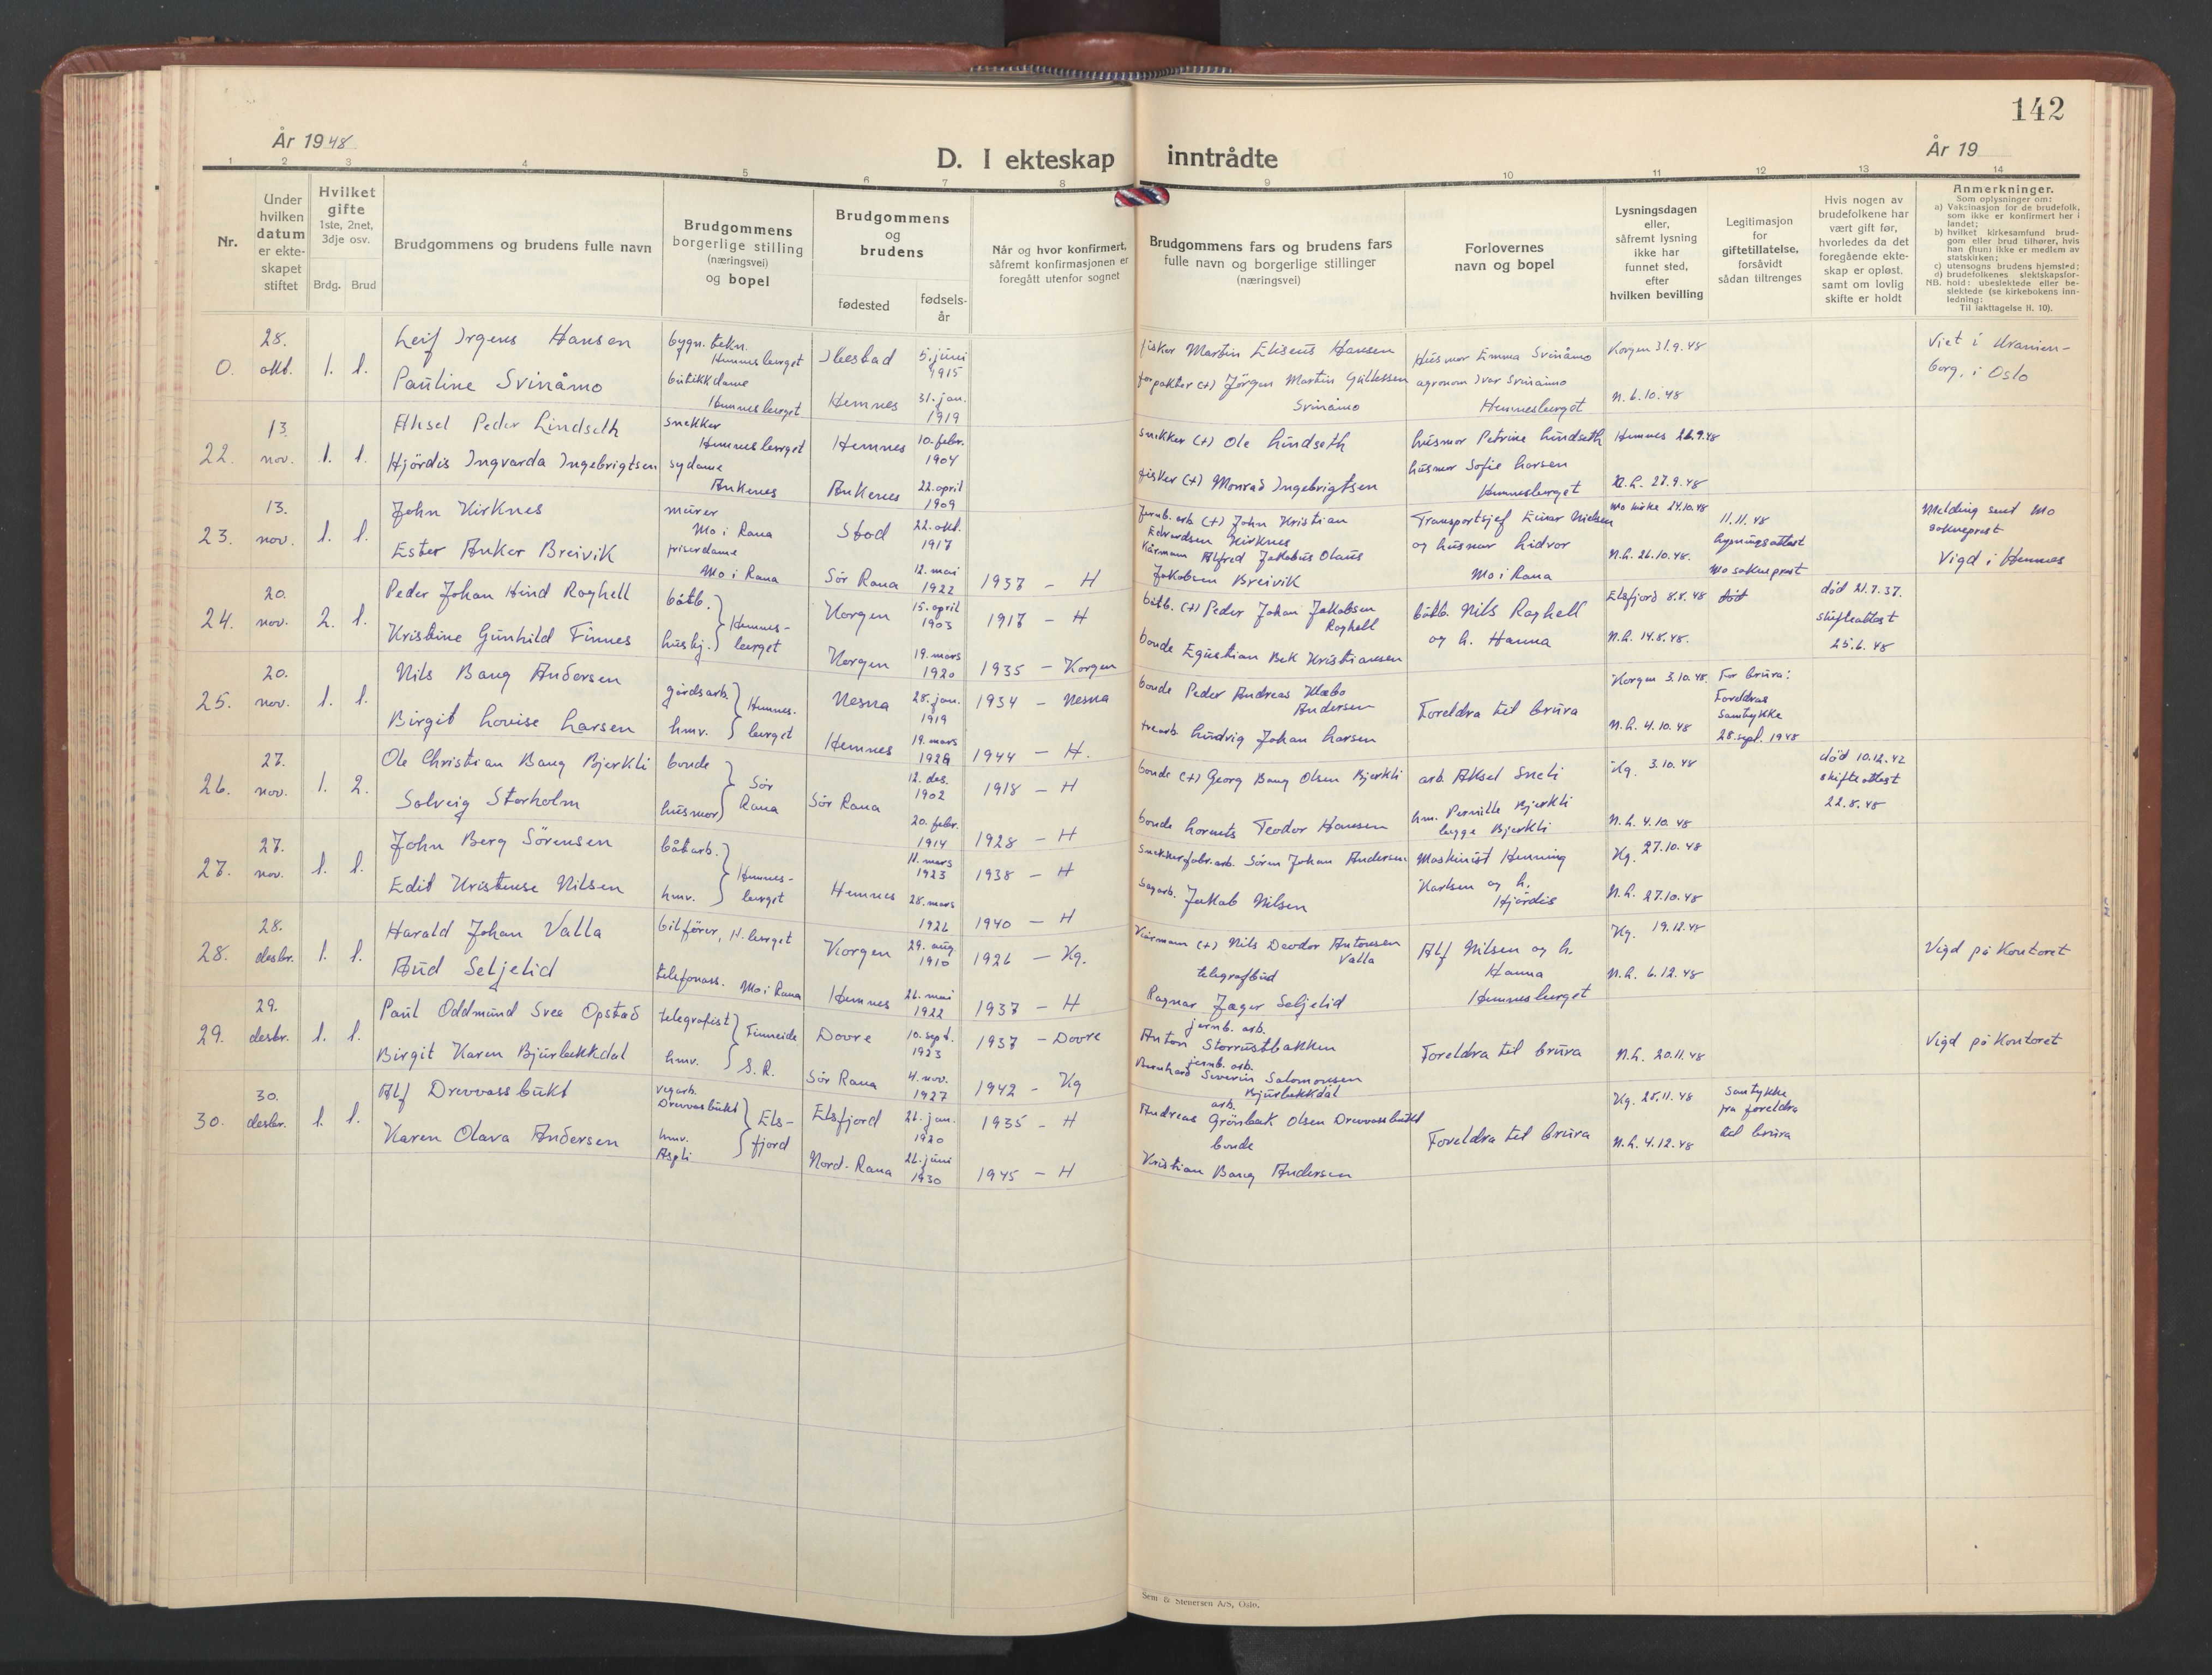 142
År 1948
D. I ekteskap inntrådte
År 19
1 2 3 4 5 6 7 8 9 10 11 12 13 14
Nr.
Under
hvilken
datum
er ekte-
skapet
stiftet
Hvilket
gifte
1ste, 2net,
3dje osv.
Brdg. Brud
Brudgommens og brudens fulle navn
Brudgommens
borgerlige stilling
(næringsvei)
og bopel
Brudgommens
og
brudens
fødested
fødsels-
år
Når og hvor konfirmert,
såfremt konfirmasjonen er
foregått utenfor sognet
Brudgommens fars og brudens fars
fulle navn og borgerlige stillinger
(næringsvei)
Forlovernes
navn og bopel
Lysningsdagen
eller,
såfremt lysning
ikke har
funnet sted,
efter
hvilken bevilling
Legitimasjon
for
giftetillatelse,
forsåvidt
sådan tiltrenges
Hvis nogen av
brudefolkene har
vært gift før,
hvorledes da det
foregående ekte-
skap er opløst,
samt om lovlig
skifte er holdt
Anmerkninger.
Som oplysninger om:
a) Vaksinasjon for de brudefolk,
som ikke er konfirmert her i
landet;
b) hvilket kirkesamfund brud-
gom eller brud tilhører, hvis
han (hun) ikke er medlem av
statskirken;
c) utensogns brudens hjemsted;
d) brudefolkenes slektskapsfor-
hold: ubeslektede eller be-
slektede (se kirkebokens inn-
ledning:
NB. Til iakttagelse H. 10).
0. 28. okt. 1. 1.
Leif Irgens Hansen
Pauline Svinåmo
bygn. tekn.
Hemnesberget
butikkdame
Hemnesberget
Ibestad 5. juni 1915
Hemnes 31. jan. 1919
fisker Martin Eliseus Hansen
forpakter (+) Jörgen Martin Gullessen
Svinåmo
Husmor Emma Svinåmo
agronom Ivar Svinåmo
Hemnesberget
Korgen 31.9.48
N. 6.10.48
Viet i Uranien-
borg, i Oslo
22. 13. nov. 1. 1.
Aksel Peder Lindseth
Hjördis Ingvarda Ingebrigtsen
snekker
Hemnesberget
sydame
Ankenes
Hemnes 10. febr. 1904
Ankenes 22. april 1909
snekker (+) Ole Lindseth
fisker (+) Monrad Ingebrigtsen
husmor Petrine Lindseth
husmor Sofie Larsen
Hemnesberget
Hemnes 26.9.48
N.L. 27.9.48
23. 13. nov. 1. 1.
John Kirknes
Ester Anker Breivik
murer
Mo i Rana
friserdame
Mo i Rana
Stod 22. okt. 1917
Sör Rana 12. mai 1922
1937 - H
Jernb. arb. (+) John Kristian
Edvardsen Kirknes
Kårmann Alfred Jakobus Olaus
Jakobsen Breivik
Transportsjef Einar Nielsen
og husmor Lidvor
Mo i Rana
Mo kirke 24.10.48
N.L. 26.10.48.
11.11.48
lysningsattest
Mo sokneprest
Melding send Mo
sokneprest
Vigd i Hemnes
24. 20. nov. 2. 1.
Peder Johan Hind Roghell
Kristine Gunhild Finnes
båtb.
husbj.
Hemnes-
berget
Korgen 15. april 1903
Korgen 19. mars 1920
1917 - H
1935 - Korgen
båtb. (+) Peder Johan Jakobsen
Roghell
bonde Egustian Bek Kristiansen
båtb. Nils Roghell
og h. Hanna
Elsfjord 8.8.48
N.L. 14.8.48.
død
død 21.7.37.
skifteattest
25.6.48
25. 20. nov. 1. 1.
Nils Bang Andersen
Birgit Lovise Larsen
gårdsarb.
hmv.
Hemnes-
berget
Nesna 28. jan. 1919
Hemnes 19. mars 1929
1934 - Nesna
1944 - H.
bonde Peder Andreas Klæbo
Andersen
trearb. Ludvig Johan Larsen
Foreldra til brura
Korgen 3.10.48
N.L. 4.10.48
For brura:
Foreldras
samtykke
28. sept. 1948
26. 27. nov. 1. 2.
Ole Christian Bang Bjerkli
Solveig Storholm
bonde
husmor
Sör
Rana
Sör Rana
12. des. 1902
20. febr. 1914
1918 - H
1928 - H
bonde (+) Georg Bang Olsen Bjerkli
bonde Lorents Teodor Hansen
arb. Aksel Sneli
hm. Pernille Bjerkli
begge Bjerkli
Kg. 3.10.48
N.L. 4.10.48
død 10.12.42
skifteattest
22.8.48
27. 27. nov. 1. 1.
John Berg Sörensen
Edit Kristense Nilsen
båtarb.
hmv.
Hemnes-
berget
Hemnes
11. mars 1923
28. mars 1921
1938 - H
1940 - H
Snekkerfabr.arb. Sören Johan Andersen
Sagarb. Jakob Nilsen
Maskinist Henning
Karlsen og h.
Hjördis
Kg. 27.10.48
N.L. 27.10.48
28. 28. desbr. 1. 1.
Harald Johan Valla
Aud Seljelid
bilförer, H.berget
telefonass. Mo i Rana
Korgen 29. aug. 1910
Hemnes 26. mai 1922
1926 - Kg.
1937 - H
Kårmann (+) Nils Deodor Antonsen
Valla
telegrafbud
Ragnar Jæger Seljelid
Alf Nilsen og h.
Hanna
Hemnesberget
Kg. 19.12.48
N.L. 6.12.48
Vigd på Kontoret
29. 29. desbr. 1. 1.
Paul Oddmund Svea Opstad
Birgit Karen Bjurbekkdal
telegrafist
hmv.
Finneide
S.R.
Dovre 10. sept. 1923
Sör Rana 4. nov. 1927
1937 - Dovre
1942 - Kg
jernb. arb.
Anton Storrustbakken
jernb. arb.
Bernhard Severin Salomonsen
Bjurbekkdal
Foreldra til brura
N.L. 20.11.48
Vigd på Kontoret
30. 30. desbr. 1. 1.
Alf Drevvassbukt
Karen Olava Andersen
vegarb.
Drevvasbukt
hmv.
Aspli
Els-
fjord
Elsfjord 26. jan. 1920
Nord-Rana 26. juni 1930
1935 - H
1945 - H
arb.
Andreas Grönbæk Olsen Drevvassbukt
bonde
Kristian Bang Andersen
Foreldra til brura
Kg. 28.11.48
N.L. 4.12.48
Samtykke
fra foreldra
til brura
Sem & Stenersen A/S, Oslo.